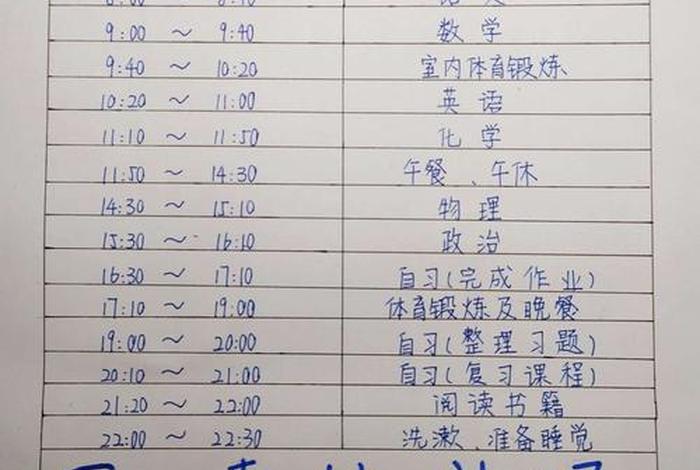 9:00 ~ 9:40 数学
9:40 ~ 10:20 室内体育锻炼
10:20 ~ 11:00 英语
11:10 ~ 11:50 化学
11:50 ~ 14:30 午餐、午休
14:30 ~ 15:10 物理
15:30 ~ 16:10 政治
16:30 ~ 17:10 自习(完成作业)
17:10 ~ 19:00 体育锻炼及晚餐
19:00 ~ 20:00 自习(整理习题)
20:10 ~ 21:00 自习(复习课程)
21:20 ~ 22:00 阅读书籍
22:00 ~ 22:30 洗漱、准备睡觉